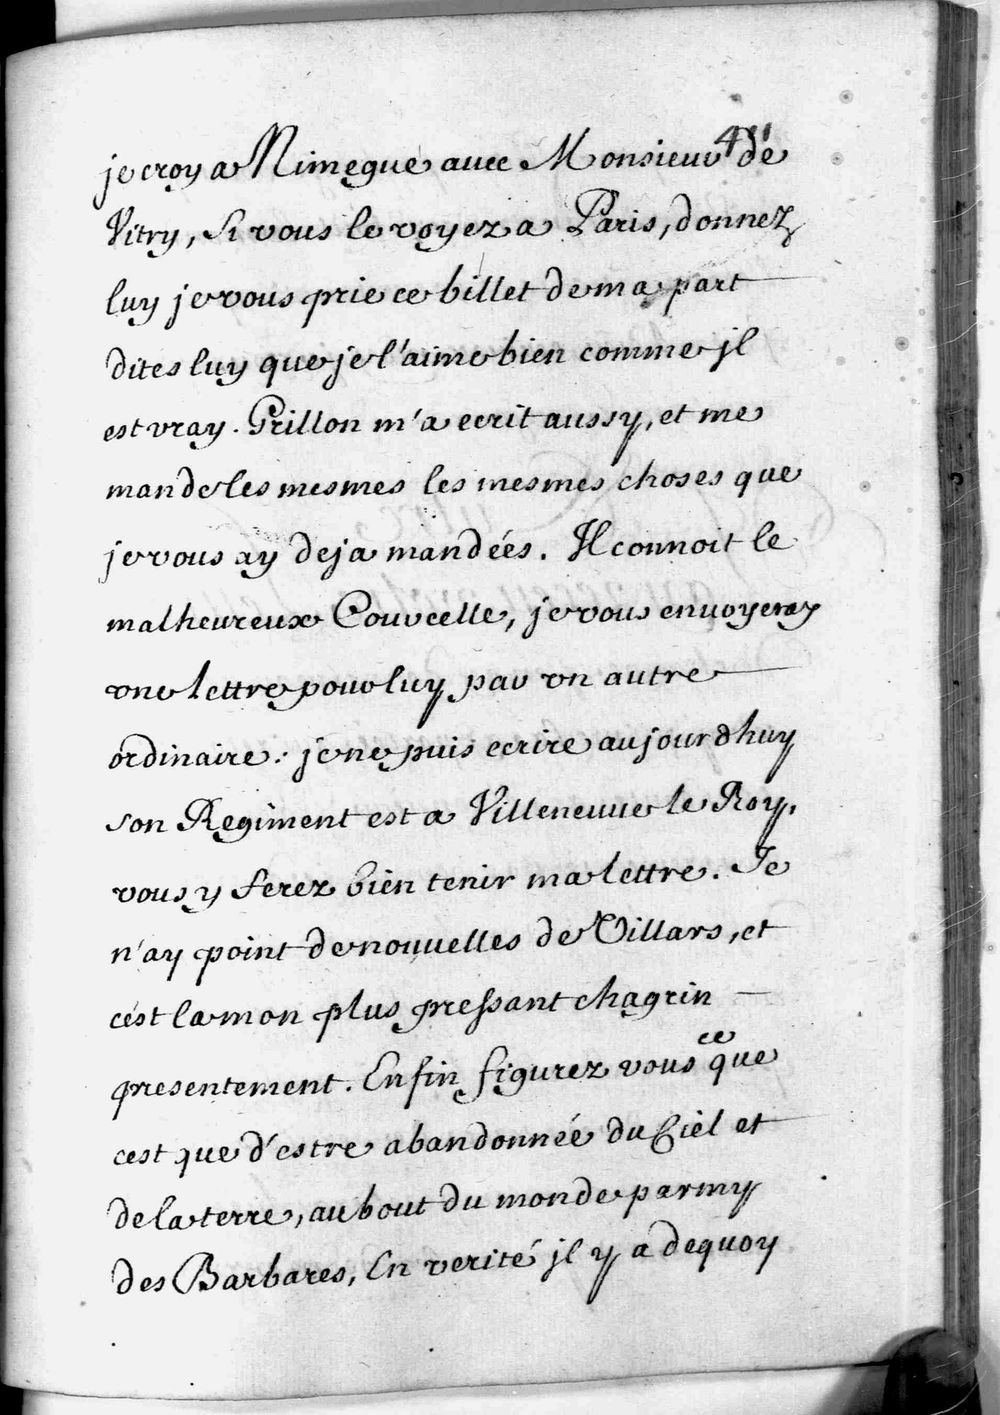 je croy a Nimegue avec Monsieur de
Vitry, Si vous le voyez a Paris, donnez
luy je vous prie ce billet de ma part
dites luy que je l'aime bien comme jl
est vray. Grillon m'a ecrit aussy, et me
mande les mesmes les mesmes choses que
je vous ay deja mandées. Il connoit le
malheureux Courcelle, je vous envoyeray
vne lettre pour luy par vn autre
ordinaire: je ne puis ecrire aujourdhuy
son Regiment est a Villeneuve le Roy,
vous y ferez bien tenir ma lettre. Je
n'ay point de nouvelles de Villars, et
c'est la mon plus pressant chagrin
presentement. Enfin figurez vous ce que
cest que d'estre abandonnée du Ciel et
de la terre, au bout du monde parmy
des Barbares, En verité jl y a dequoy